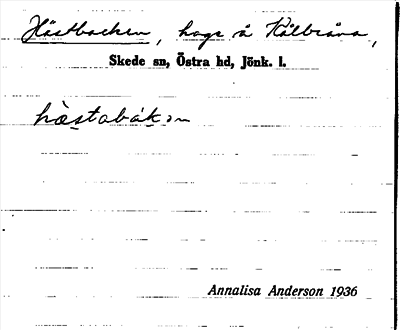 Hästbacken, hage å Kålbråna,
Skede sn, Östra hd, Jönk. l.
hæ̀stabák ən
Annalisa Anderson 1936